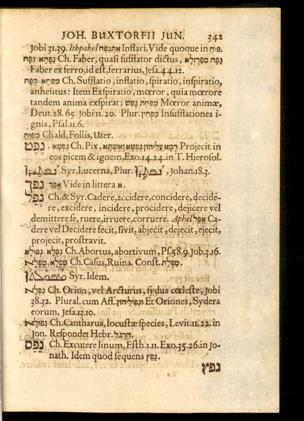 JOH. BUXTORFII JUN. 342
Jobi 31.39. Ithpahel Inflari. Vide quoque in פוח
Ch. Faber, quasi sufflator dictus,
Faber ex ferro, id est, ferrarius, Jesa. 44.12.
Ch. Sufflatio, inflatio, spiratio, inspiratio,
anhelitus: Item Exspiratio, mœror, quia mœrore
tandem anima exspirat: Mœror animæ,
Deut. 28.65. Jobi 11.20. Plur. Insufflationes i-
gnis, Psal. 11.6.
Chald. Follis, Uter.
נפט Ch. Pix, Projecit in
eos picem & ignem, Exo. 14.24. in T. Hierosol.
Syr. Lucerna, Plur. Johan. 18.3.
נפך Vide in littera א
נפל Ch. & Syr. Cadere, accidere, concidere, decide-
re, excidere, incidere, procidere, dejicere vel
demittere se, ruere, irruere, corruere. Aphel אפל Ca-
dere vel Decidere fecit, sivit, abjecit, dejecit, ejecit,
projecit, prostravit.
Ch. Abortus, abortivum, Ps. 58.9. Job. 3.16.
Ch. Casus, Ruina. Const.
Syr. Idem.
נפלא Ch. Orion, vel Arcturus, sydus cœleste, Jobi
38.32. Plural. cum Aff. Et Oriones, Sydera
eorum, Jesa. 13.10.
נפולא Ch. Cantharus, locustæ species, Levit. 11.22. in
Jon. Respondet Hebr. חרגל
נפס Ch. Excutere linum, Esth. 1.11. Exo. 35.26. in Jo-
nath. Idem quod sequens נפץ
נפץ